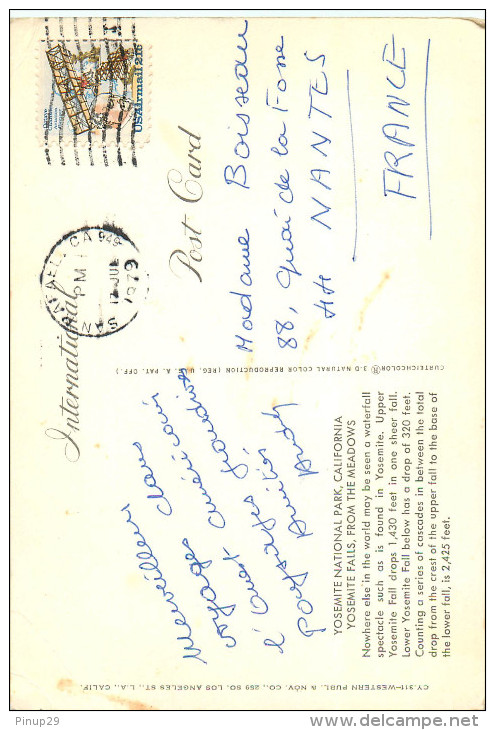 International
Post Card
SAN RAFAEL, CA 949
PM
12 JUL
1979
USAirmail 21c
Merveilleux dans
voyages américain
l'ouest
paysages
Amitiés
Madame BOISSEAU
88, Quai de la Fosse
44 NANTES
FRANCE
CURTEICHCOLOR® 3-D NATURAL COLOR REPRODUCTION (REG. U. S. A. PAT. OFF.)
YOSEMITE NATIONAL PARK, CALIFORNIA
YOSEMITE FALLS, FROM THE MEADOWS
Nowhere else in the world may be seen a waterfall
spectacle such as is found in Yosemite. Upper
Yosemite Fall drops 1,430 feet in one sheer fall.
Lower Yosemite Fall below has a drop of 320 feet.
Counting a series of cascades in between the total
drop from the crest of the upper fall to the base of
the lower fall, is 2,425 feet.
CY.911—WESTERN PUBL. & NOV. CO., 259 SO. LOS ANGELES ST., L.A., CALIF.
Pinup29